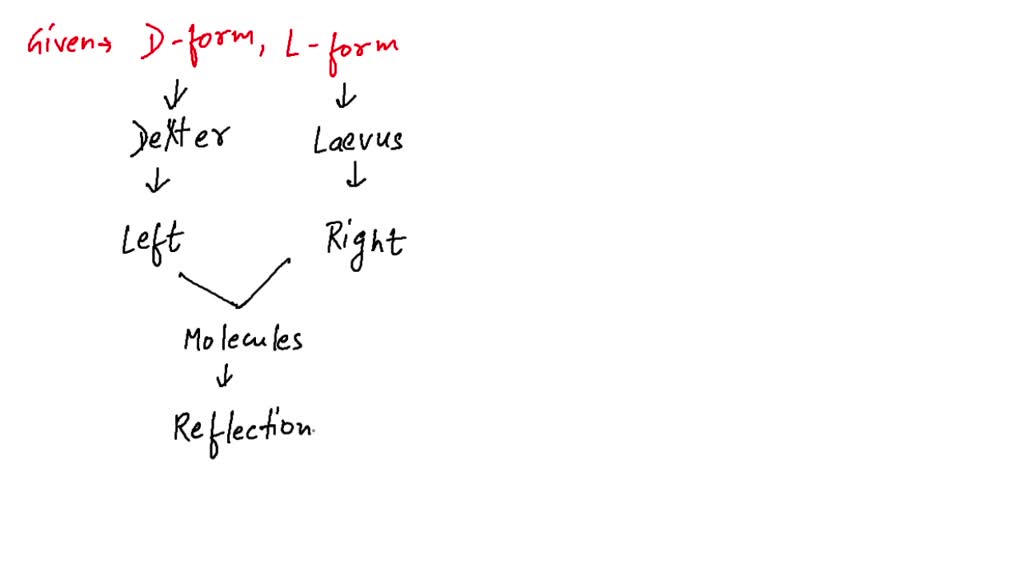 Given→ D-form, L-form
↓ ↓
Dexter Laevus
↓ ↓
Left Right
Molecules
↓
Reflection